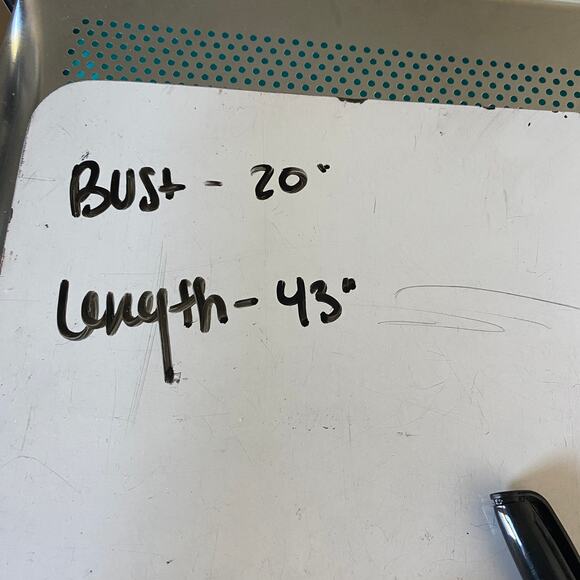 Bust - 20"
Length - 43"